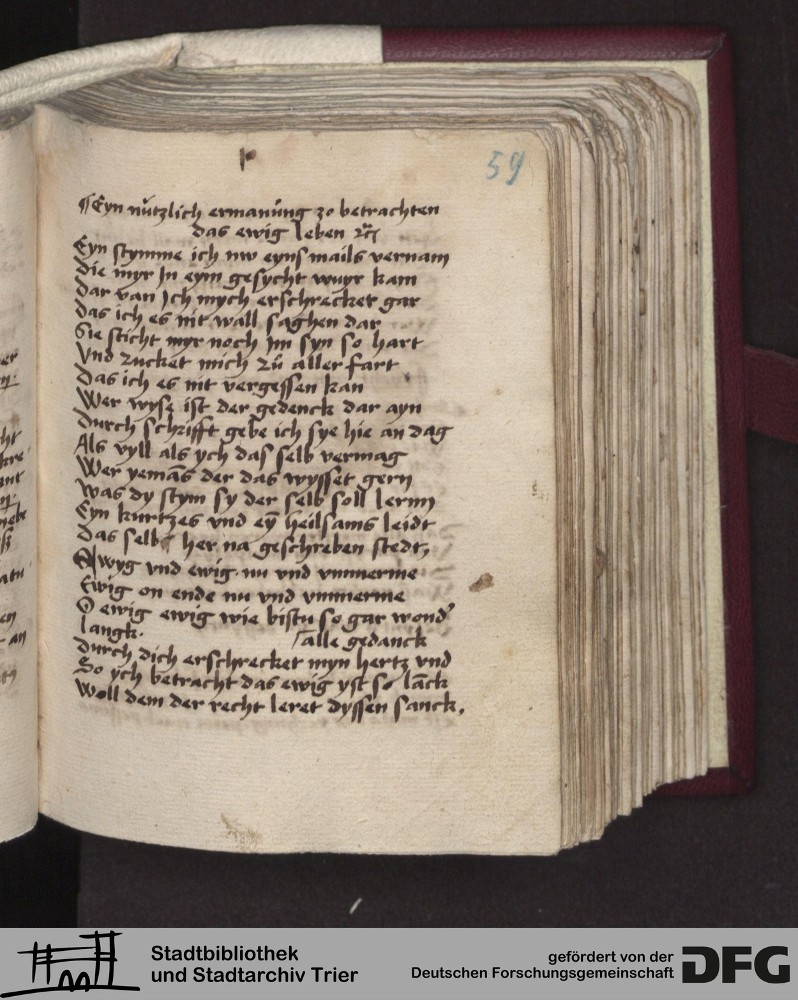 59
¶ Eyn nůtzlich ermanůng zo betrachten
das ewig leben ꝛc̃
Eyn stymme ich nw eyns mails vernam
Die myr In eym gesycht wuyr kam
Dar van Ich mych erschrecket gar
Das ich es nit wall saghen dar
Sie sticht myr noch Im syn so hart
Vnd zucket mich zů aller fart
Das ich es nit vergessen kan
Wer wysz ist der gedenck dar ayn
Durch schrifft gebe ich sye hie an dag
Als vyll als ych das selb vermag
Wer yemãs der das wysset gern
Was dy stym sy der selb soll lernn
Eyn kurtzes vnd eỹ heilsams leidt
Das selb her na geschreben stedt,
Ewyg vnd ewig nu vnd vmmerme
Ewig on ende nu vnd vmmerme
O ewig ewig wie bistu so gar wond'
langk. alle gedanck
Durch dich erschrecket myn hertz vnd
So ych betracht das ewig yst so lãck
Woll dem der recht leret dyssen sanck.
Stadtbibliothek
und Stadtarchiv Trier
gefördert von der
Deutschen Forschungsgemeinschaft
DFG